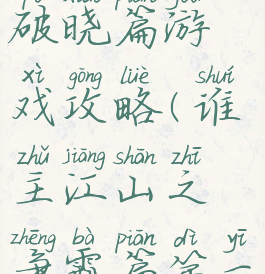 pò xiǎo piān yóu
破晓篇游
xì gōng lüè shuí
戏攻略(谁
zhǔ jiāng shān zhī
主江山之
zhēng bà piān dì yī
争霸篇第一